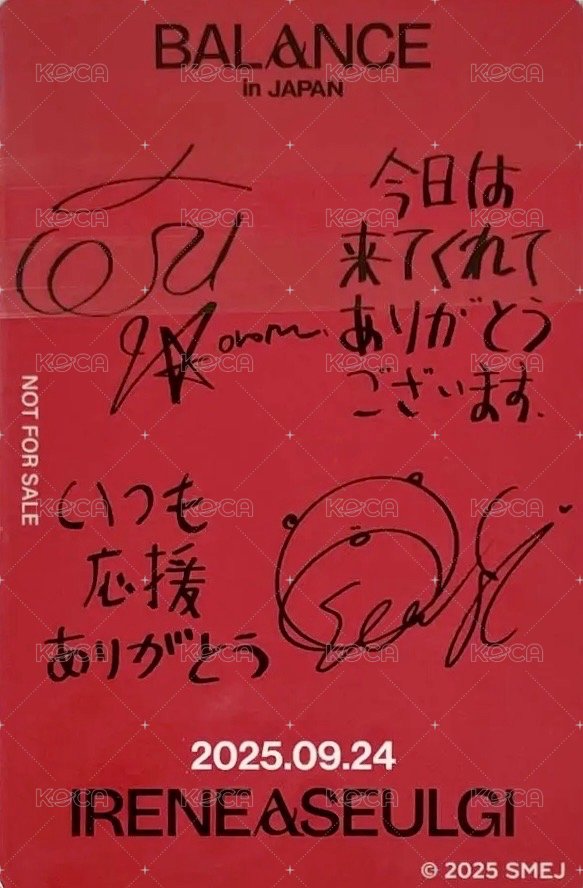 BALANCE
in JAPAN
今日は
来てくれて
ありがとう
ございます.
NOT FOR SALE
いつも
応援
ありがとう
Seulgi
2025.09.24
IRENE&SEULGI
© 2025 SMEJ
KOCA